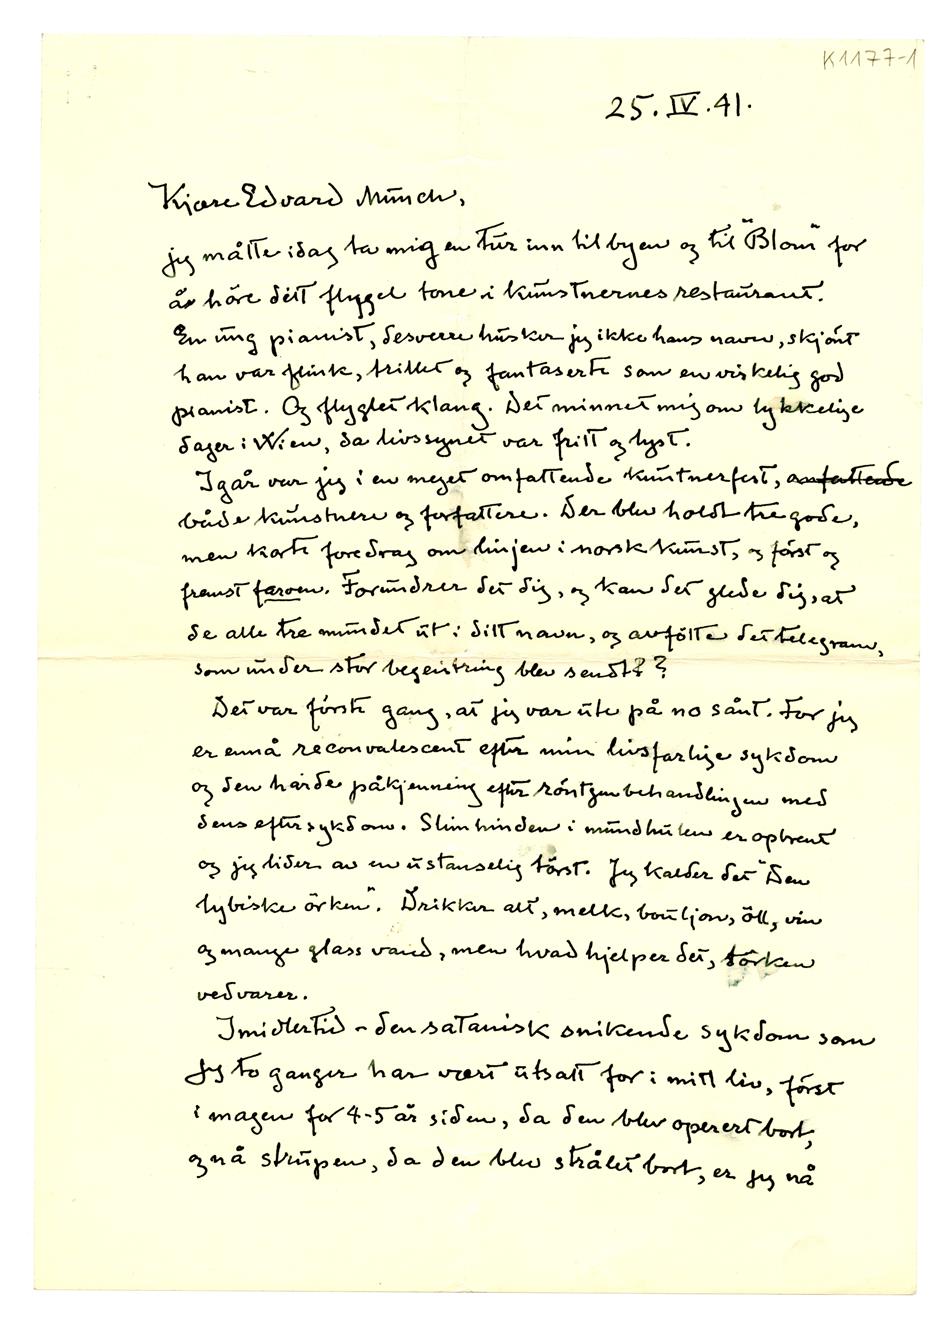 K1177-1
25.IV.41.
Kjære Edvard Munch,
jeg måtte idag ta mig en tur inn til byen og til "Blom" for
å høre ditt flygel tone i kunstnernes restaurant.
En ung pianist, desverre husker jeg ikke hans navn, skjönt
han var flink, trillet og fantaserte som en virkelig god
pianist. Og flyglet klang. Det minnet mig om lykkelige
dager i Wien, da livssynet var fritt og lyst.
Igår var jeg i en meget omfattende kunstnerfest,
både kunstnere og forfattere. Der blev holdt tre gode,
men korte foredrag om linjen i norsk kunst, og först og
fremst farven. Forundrer det dig, og kan det glede dig, at
de alle tre mundet ut i ditt navn, og avfölte det telegram,
som under stor begeistring blev sendt??
Det var förste gang, at jeg var ute på no sånt. For jeg
er ennå reconvalescent efter min livsfarlige sykdom
og den hårde påkjenning efter röntgenbehandlingen med
dens eftersykdom. Slimhinden i mundhulen er opbrent
og jeg lider av en ustanselig törst. Jeg kalder det "Den
lybiske örken". Drikker alt, melk, bouljon, öll, vin
og mange glass vand, men hvad hjelper det, törken
vedvarer.
Imidlertid – den satanisk snikende sykdom som
jeg to ganger har vært utsatt for i mitt liv, först
i magen for 4-5 år siden, da den blev operert bort,
og nå strupen, da den blev strålet bort, er jeg nå